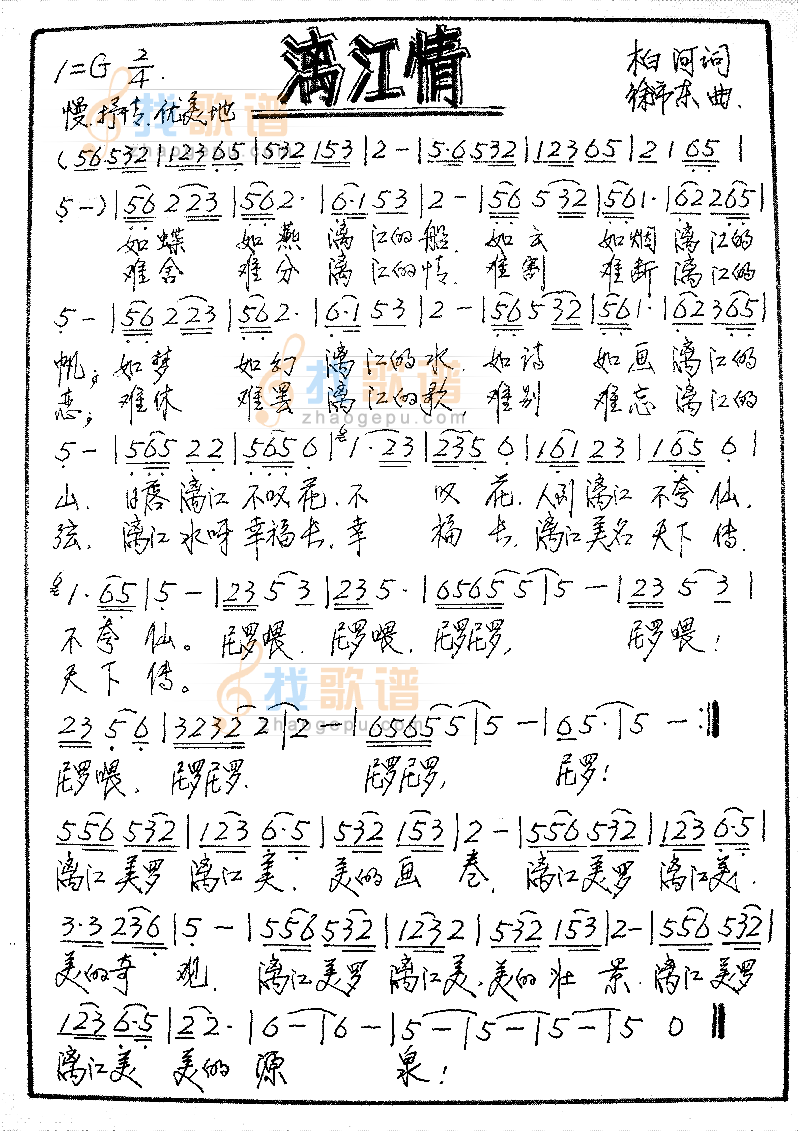 漓江情
1=G 2/4
柏河词
慢.抒情.优美地
徐沛东曲.
(56 532|123 65|532 153|2 -|5·6 532|123 65|2 1 65|
5 -)|56 2 23|56 2·|6·1 53|2 -|56 5 32|56 1·|62 2 65|
如蝶 如燕 漓江的船. 如云 如烟 漓江的
难舍 难分 漓江的情. 难割 难断 漓江的
5 -|56 2 23|56 2·|6·1 53|2 -|56 532|56 1·|623 65|
帆; 如梦 如幻 漓江的水. 如诗 如画 漓江的
恋; 难休 难罢 漓江的歌, 难别 难忘 漓江的
5 -|565 22|565 6|1· 23|235 6|161 23|165 6|
山. 日落漓江 不叹花. 不 叹 花. 人到漓江 不夸 仙.
弦. 漓江水呀 幸福长. 幸 福 长. 漓江美名 天下 传.
1· 65|5 -|23 5 3|23 5·|6565 5|5 -|23 5 3|
不夸 仙。 尼罗喂. 尼罗喂. 尼罗尼罗, 尼罗喂!
天下 传。
23 5 6|3232 2|2 -|6565 5|5 -|65·|5 -:‖
尼罗喂. 尼罗尼罗. 尼罗尼罗, 尼罗!
556 532|123 6·5|532 153|2 -|556 532|123 6·5|
漓江美罗 漓江美. 美的画 卷. 漓江美罗 漓江美.
3·3 236|5 -|556 532|1232|532 153|2 -|556 532|
美的奇 观. 漓江美罗 漓江美. 美的壮 景. 漓江美罗
123 6·5|22·|6 -|6 -|5 -|5 -|5 -|5 0‖
漓江美 美的 源 泉!
找歌谱
zhaogepu.com
找歌谱
zhaogepu.com
找歌谱
zhaogepu.com